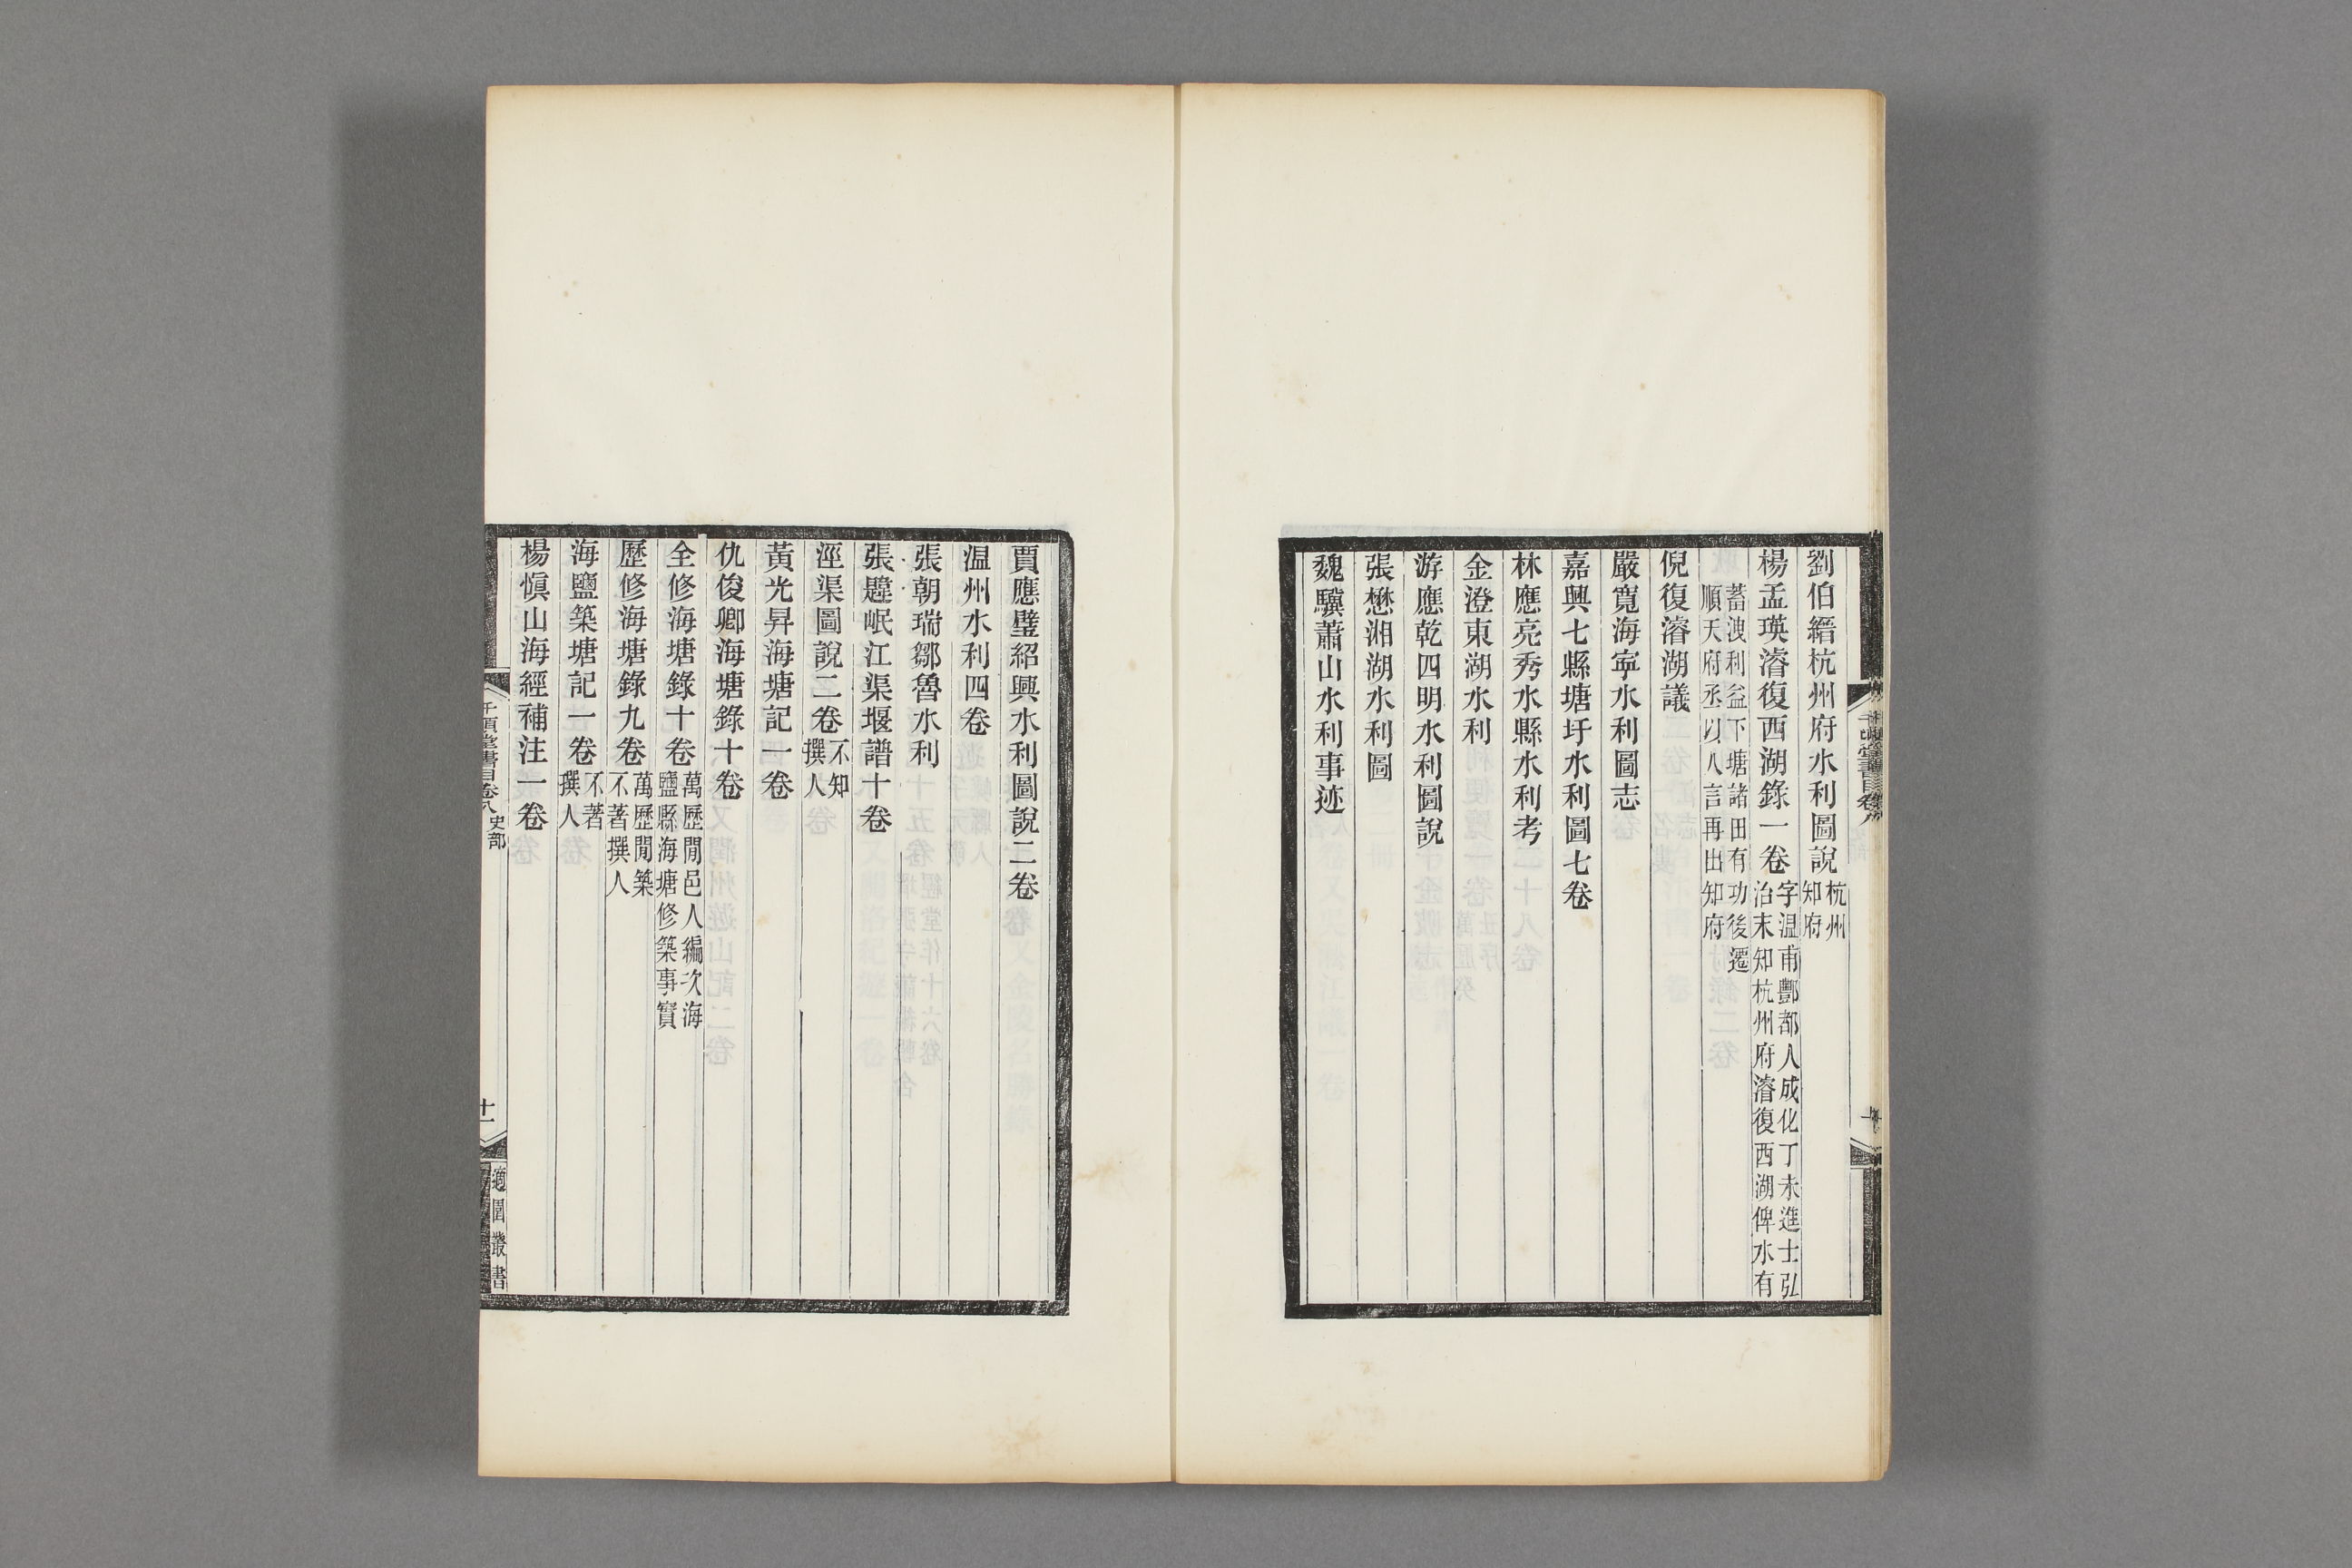 劉伯縉杭州府水利圖說杭州知府
楊孟瑛濬復西湖錄一卷字温甫酆都人成化丁未進士弘治末知杭州府濬復西湖俾水有
蓄洩利益下塘諸田有功後遷順天府丞以人言再出知府
倪復濬湖議
嚴寬海寧水利圖志
嘉興七縣塘圩水利圖七卷
林應亮秀水縣水利考
金澄東湖水利
游應乾四明水利圖說
張懋湘湖水利圖
魏驥蕭山水利事迹
賈應璧紹興水利圖說二卷
温州水利四卷
張朝瑞鄒魯水利
張韙岷江渠堰譜十卷
涇渠圖說二卷不知撰人
黃光昇海塘記一卷
仇俊卿海塘錄十卷
全修海塘錄十卷萬歷閒邑人編次海鹽縣海塘修築事實
歷修海塘錄九卷萬歷閒築不著撰人
海鹽築塘記一卷不著撰人
楊慎山海經補注一卷
千頃堂書目卷八 史部
十一
適園叢書